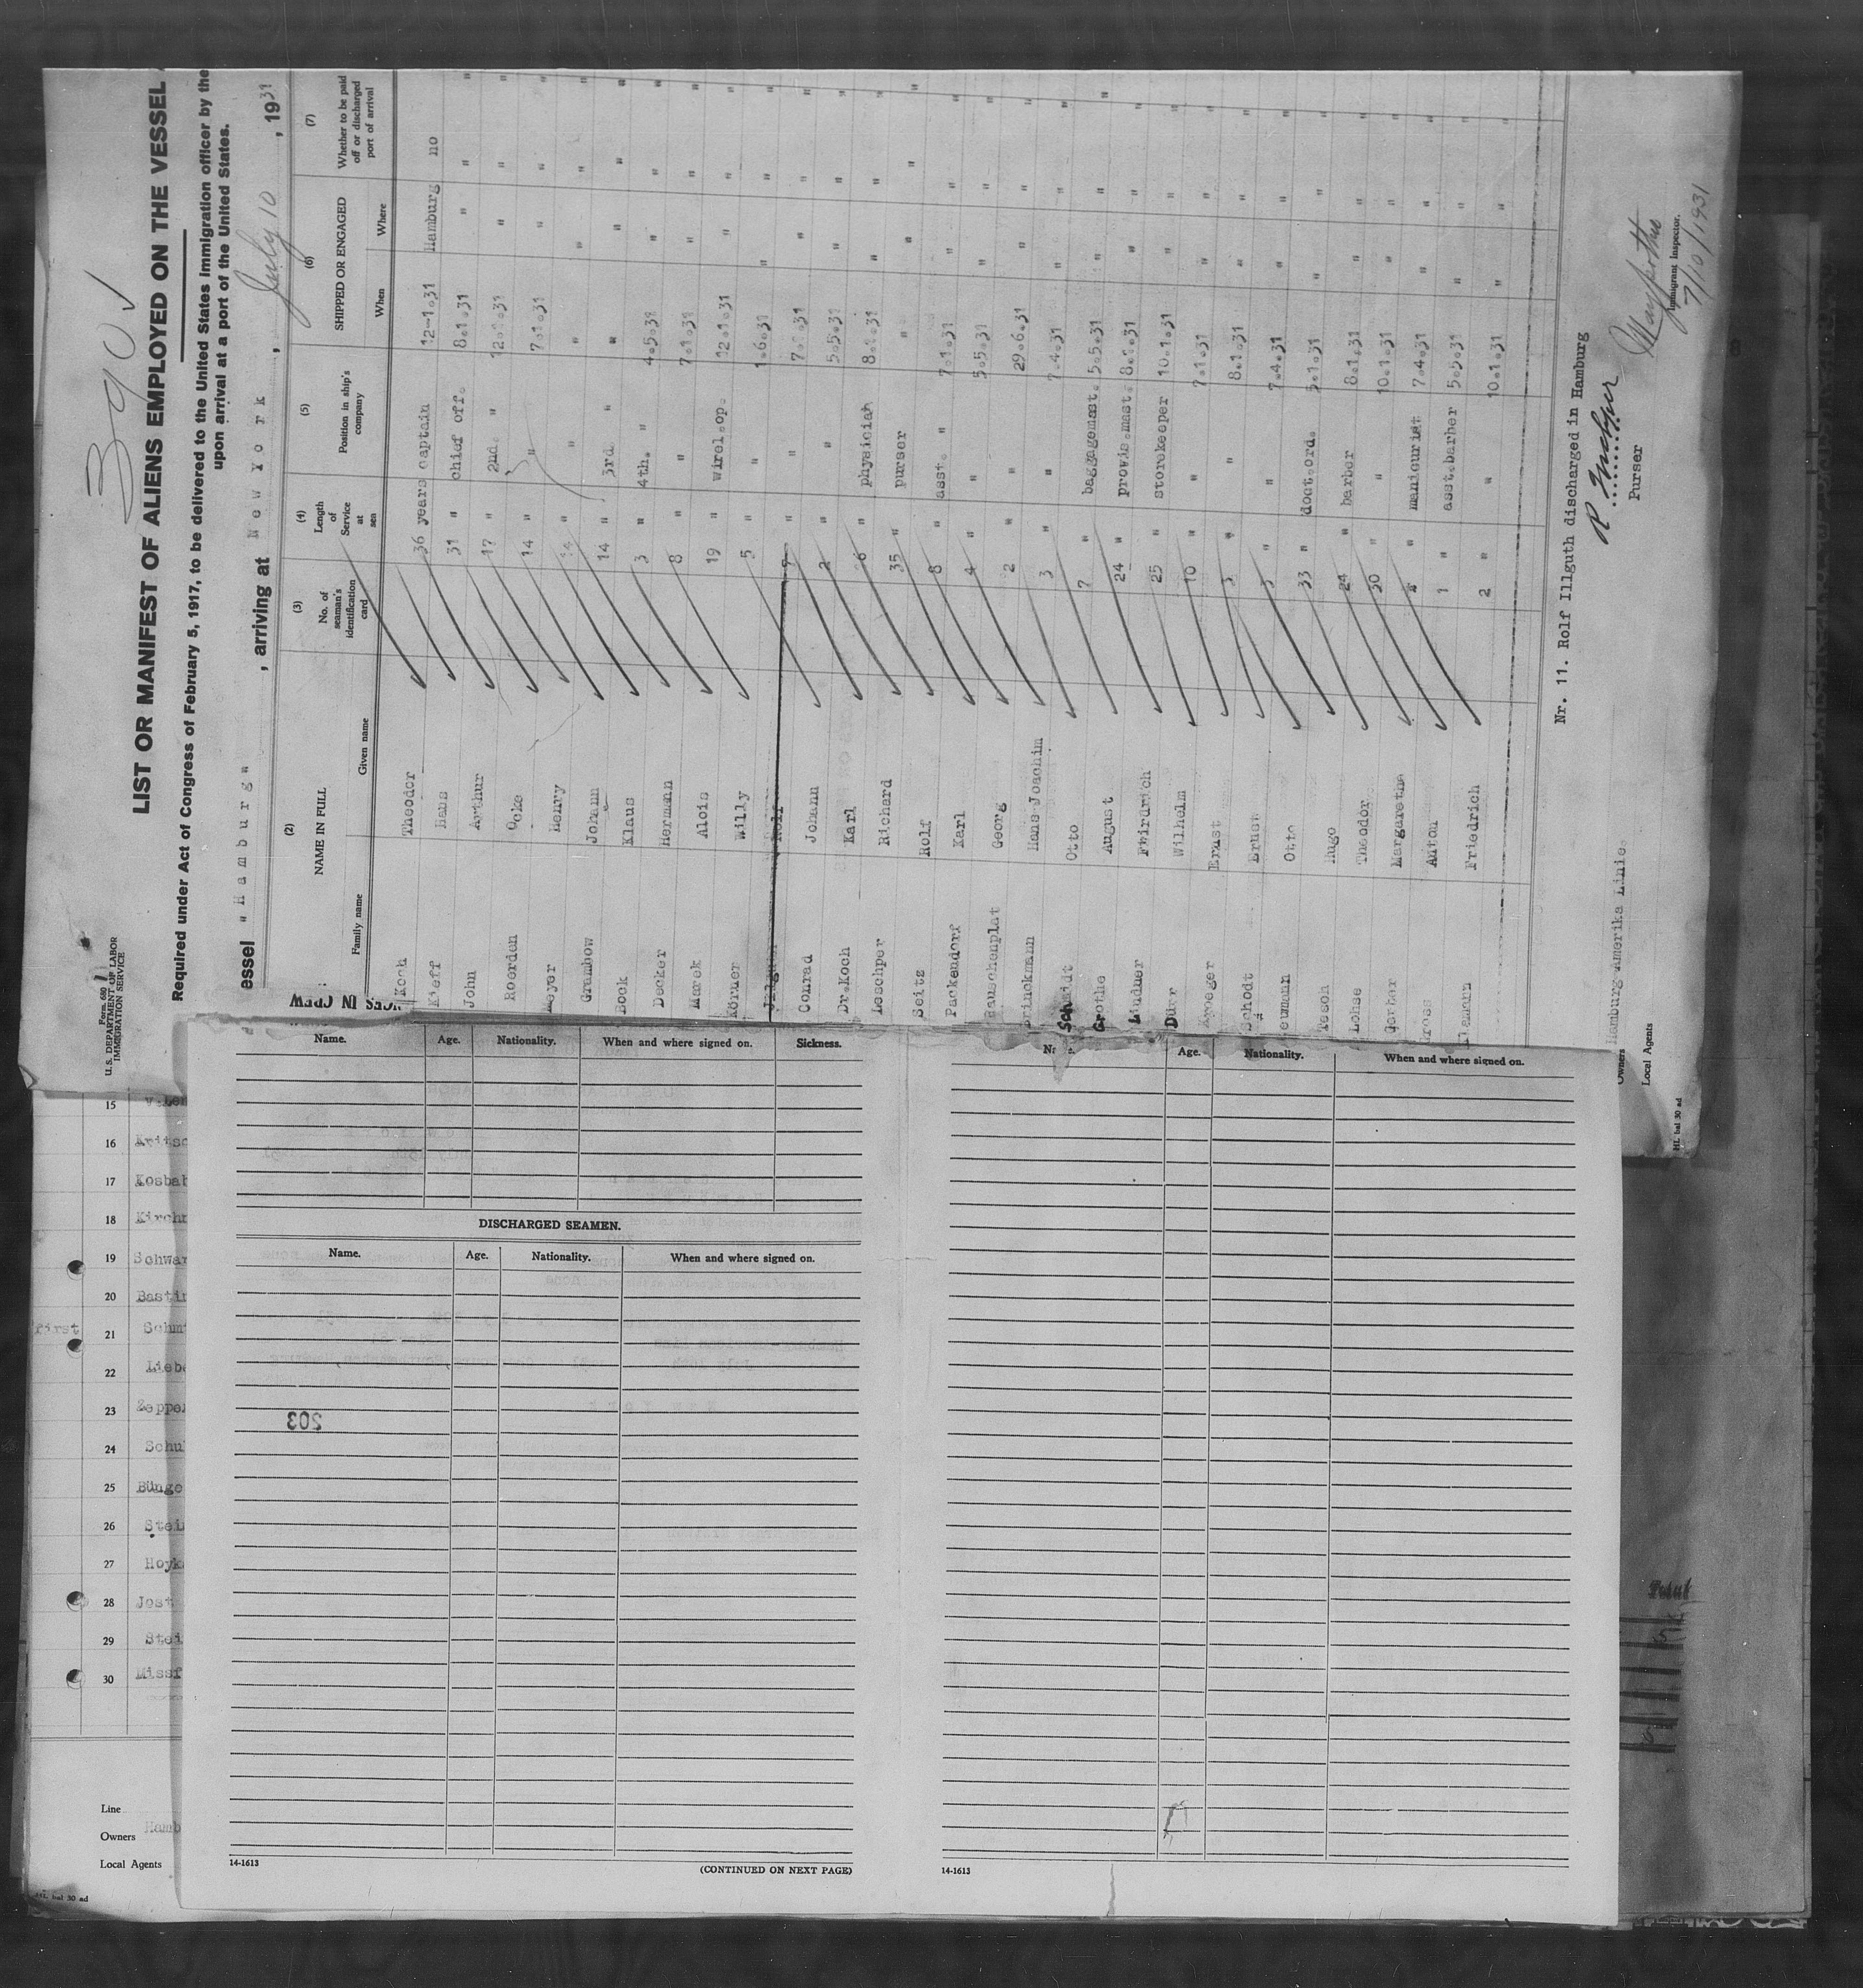 390 ✓
Form 680
U. S. DEPARTMENT OF LABOR
IMMIGRATION SERVICE
LIST OR MANIFEST OF ALIENS EMPLOYED ON THE VESSEL
Required under Act of Congress of February 5, 1917, to be delivered to the United States immigration officer by the
upon arrival at a port of the United States.
essel "Hamburg" , arriving at New York , July 10 , 1931
(2) (3) (4) (5) (6) (7)
NAME IN FULL No. of seaman's identification card Length of Service at sea Position in ship's company SHIPPED OR ENGAGED Whether to be paid off or discharged port of arrival
Family name Given name When Where
Koch Theodor 36 years captain 12.1.31 Hamburg no
Kieff Hans 31 " chief off. 8.1.31 " " "
John Arthur 17 " 2nd. " 12.1.31 " " "
Roerden Ocke 14 " " 7.1.31 " " "
eyer Henry 14 " " " " " "
Grambow Johann 14 " 3rd. " " " " "
Bock Klaus 3 " 4th. " 4.5.31 " " "
Decker Hermann 8 " " 7.1.31 " " "
Marek Alois 19 " wirel.op. 12.1.31 " " "
Körner Willy 5 " " 1.6.31 " " "
Rolf " " " "
Conrad Johann 2 " " 5.5.31 " " "
Dr.Koch Karl " physician 8.1.31 " " "
Leschper Richard 35 " purser " " " "
Seitz Rolf 8 " asst. " 7.1.31 " " "
Packendorf Karl 4 " " 5.5.31 " " "
auschenplat Georg 2 " " 29.6.31 " " "
rinckmann Hans Joachim 3 " " 7.4.31 " " "
Schmidt Otto 7 " baggagemast. 5.5.31 " " "
Grothe August 24 " provis.mast. 8.1.31 " " "
Lindner Friedrich 25 " storekeeper 10.1.31 " " "
Dürr Wilhelm 10 " " 7.1.31 " " "
roeger Ernst 3 " " 8.1.31 " " "
Schodt Ernst 3 " " 7.4.31 " " "
eumann Otto 33 " doct.ord. 5.1.31 " " "
Tesch Hugo 24 " barber 8.1.31 " " "
Lohse Theodor 30 " " 10.1.31 " " "
Gerber Margarethe " manicurist 7.4.31 " " "
ross Anton 1 " asst.barber 5.5.31 " " "
Friedrich 2 " " 10.1.31 " " "
Nr. 11. Rolf Illguth discharged in Hamburg
Purser
Immigrant Inspector.
7/10/1931
Owners Hamburg Amerika Linie.
Local Agents
HL bal 30 ad
Name. Age. Nationality. When and where signed on. Sickness.
DISCHARGED SEAMEN.
Name. Age. Nationality. When and where signed on.
203
14-1613
(CONTINUED ON NEXT PAGE)
Age. Nationality. When and where signed on.
14-1613
15
16 Kritsc
17 Kosbah
18 Kirchn
19 Schwar
20 Bastin
first 21 Schmt
22 Lieb
23 Zeppe
24 Schul
25 Bünge
26 Stein
27 Hoyk
28 Jost
29 Stei
30 Missf
Line
Owners Hamb
Local Agents
HL bal 30 ad